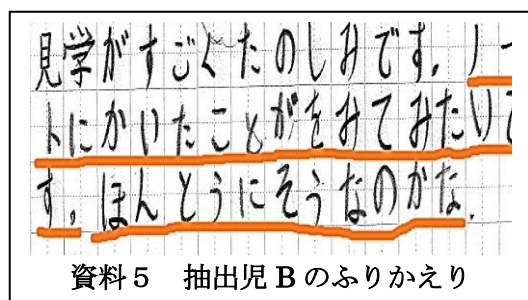 見学がすごくたのしみです。ノー
トにかいたことがをみてみたいで
す。ほんとうにそうなのかな。
資料5 抽出児Bのふりかえり